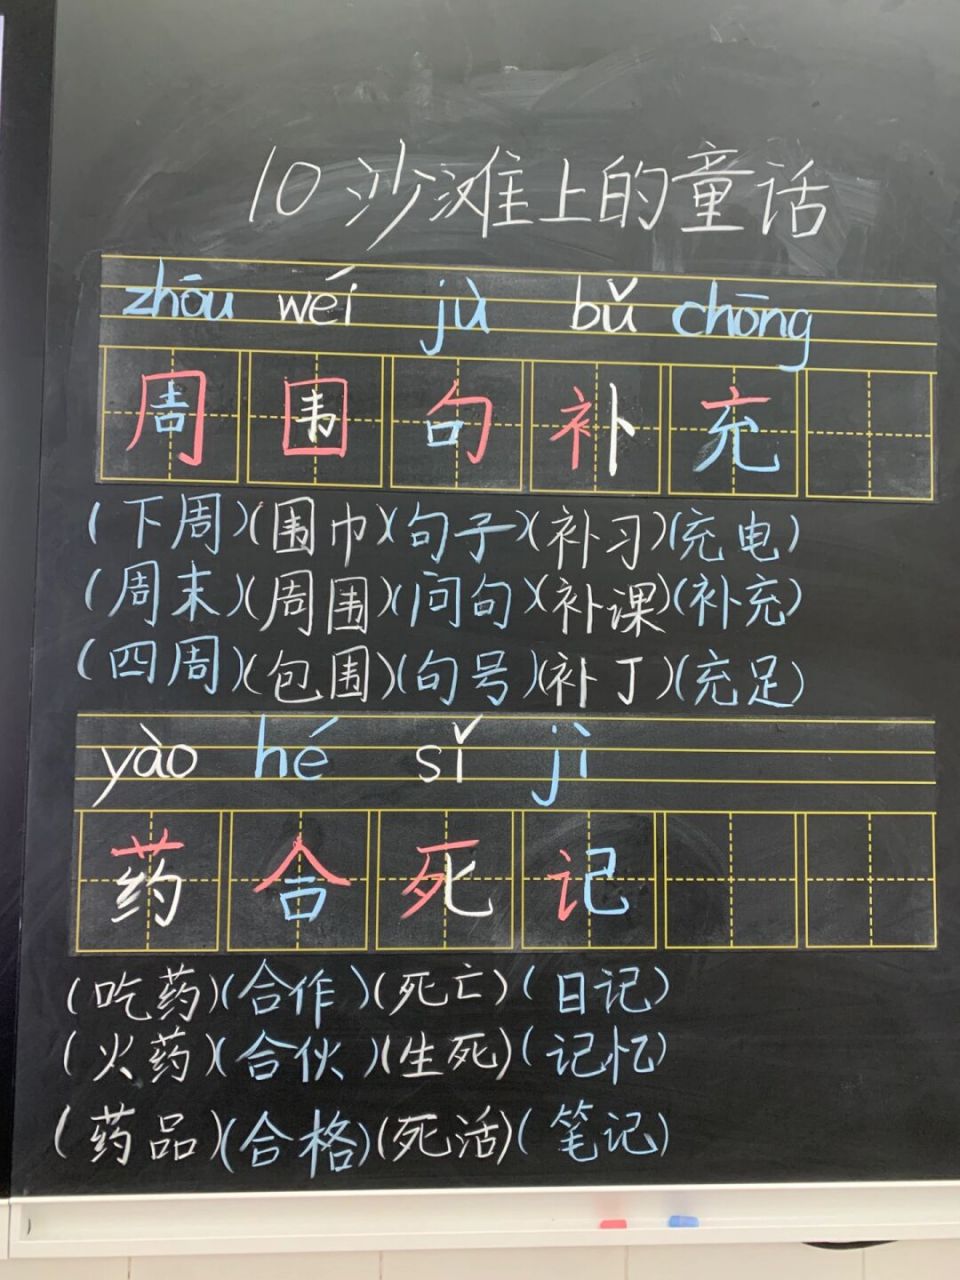 10 沙滩上的童话
zhōu wéi jù bǔ chōng
周 围 句 补 充
(下周)(围巾)(句子)(补习)(充电)
(周末)(周围)(问句)(补课)(补充)
(四周)(包围)(句号)(补丁)(充足)
yào hé sǐ jì
药 合 死 记
(吃药)(合作)(死亡)(日记)
(火药)(合伙)(生死)(记忆)
(药品)(合格)(死活)(笔记)